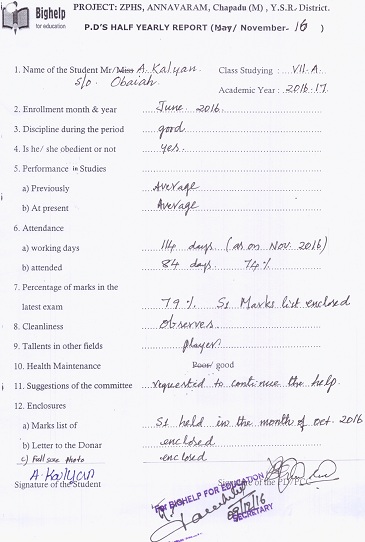 Bighelp
for education
PROJECT: ZPHS, ANNAVARAM, Chapadu (M) , Y.S.R- District.
P.D'S HALF YEARLY REPORT (May/ November- 16 )
1. Name of the Student Mr/Miss A. Kalyan. Class Studying : VII-A
S/o Obaiah. Academic Year : 2016-17
2. Enrollment month & year June 2016
3. Discipline during the period good
4. Is he/ she obedient or not yes.
5. Performance in Studies
a) Previously Average
b) At present Average
6. Attendance
a) working days 114 days (as on Nov. 2016)
b) attended 84 days 74%
7. Percentage of marks in the
latest exam 79% S1 Marks list enclosed
8. Cleanliness Observes
9. Tallents in other fields player
10. Health Maintenance Poor/ good
11. Suggestions of the committee requested to continue the help.
12. Enclosures
a) Marks list of S1 held in the month of oct. 2016
b) Letter to the Donar enclosed
c) Full size photo enclosed
A. Kalyan
Signature of the Student Signature of the PD/PLC
For BIGHELP FOR EDUCATION
SECRETARY